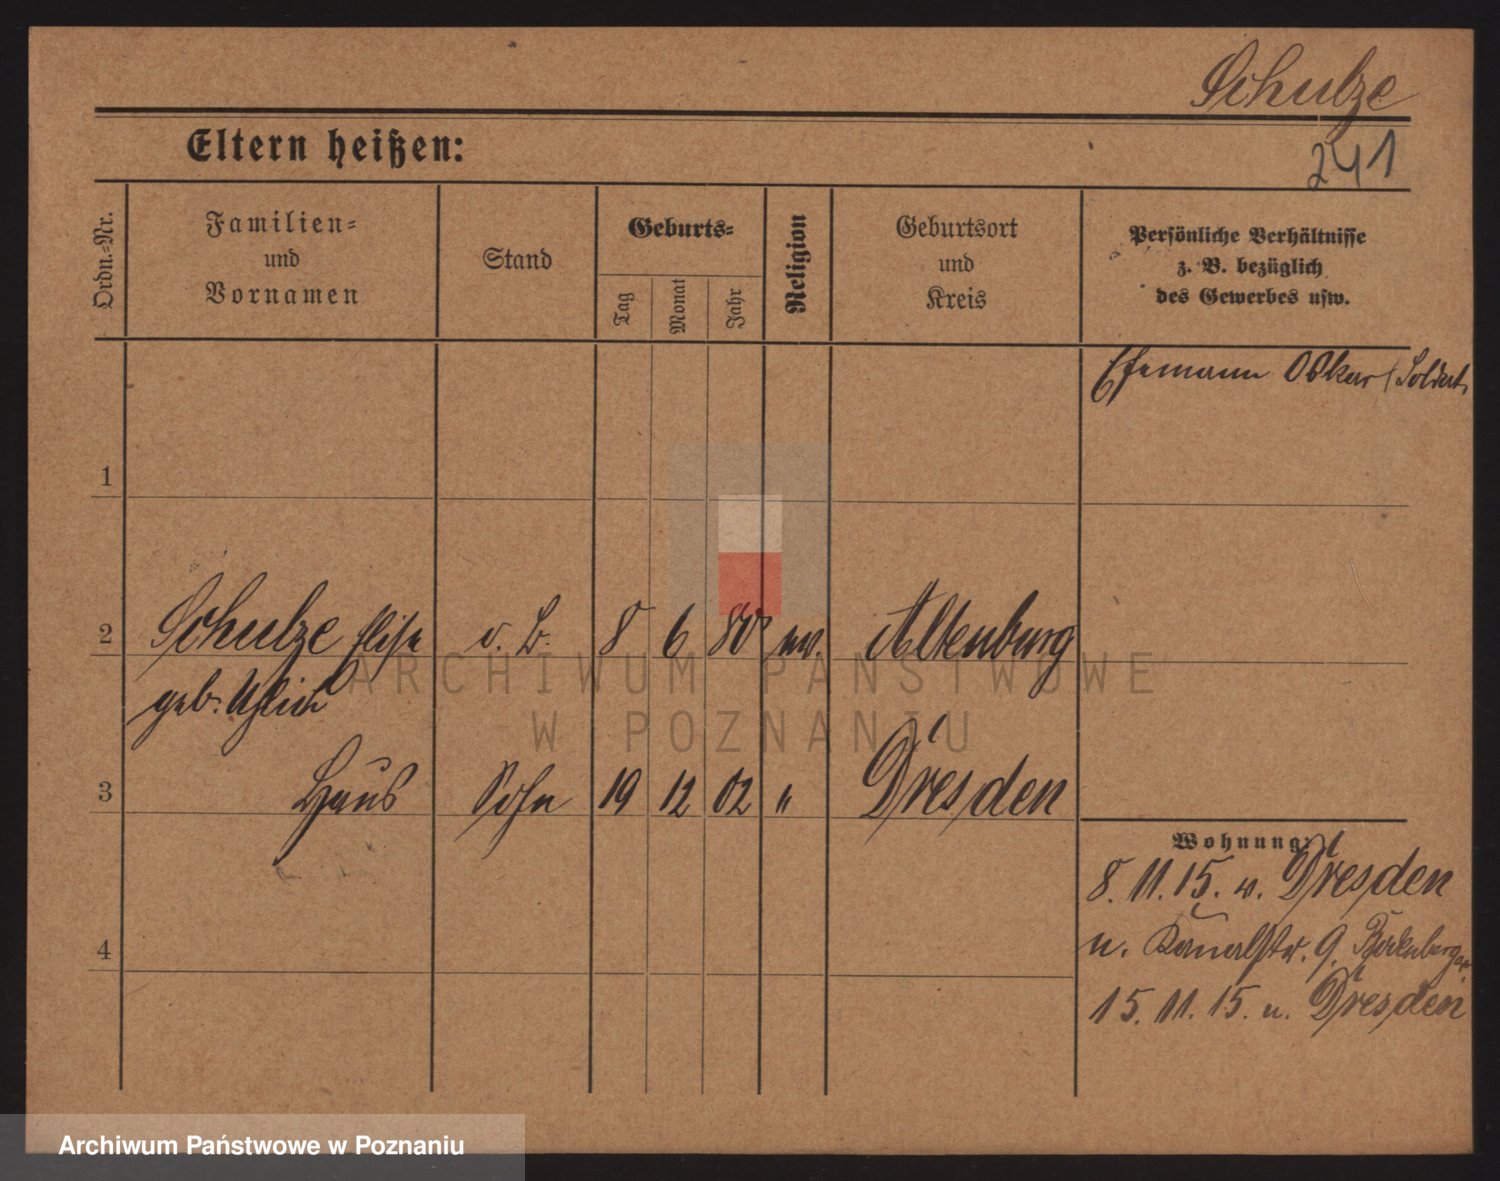 Schulze
Eltern heißen:
241
Ordn.-Nr.
Familien-
und
Vornamen
Stand
Geburts-
Tag
Monat
Jahr
Religion
Geburtsort
und
Kreis
Persönliche Verhältnisse
z. B. bezüglich
des Gewerbes usw.
Ehemann Oskar (Soldat
1
2 Schulze Elise v. B. 8 6 80 ev. Altenburg
geb. Uhlich
3 Hans Sohn 19 12 02 " Dresden
Wohnung:
8. 11. 15. v. Dresden
n. Kanalstr. 9.
15. 11. 15. n. Dresden
4
ARCHIWUM PAŃSTWOWE
W POZNANIU
Archiwum Państwowe w Poznaniu